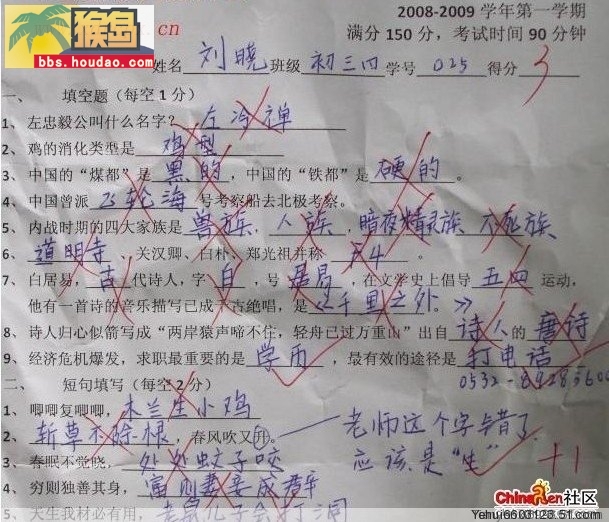 猴岛
bbs.houdao.com
.cn
2008-2009 学年第一学期
满分 150 分，考试时间 90 分钟
姓名 刘晓 班级 初三四 学号 025 得分 3
一、 填空题（每空 1 分）
1、左忠毅公叫什么名字？ 左冷禅
2、鸡的消化类型是 鸡型
3、中国的“煤都”是 黑的，中国的“铁都”是 硬的。
4、中国曾派 飞轮海 号考察船去北极考察。
5、内战时期的四大家族是 兽族，人族，暗夜精灵族、不死族
6、道明寺、关汉卿、白朴、郑光祖并称 F4。
7、白居易，古 代诗人，字 白，号 居易，在文学史上倡导 五四 运动，
他有一首诗的音乐描写已成千古绝唱，是 《千里之外。》
8、诗人归心似箭写成“两岸猿声啼不住，轻舟已过万重山”出自 诗人 的 唐诗
9、经济危机爆发，求职最重要的是 学历，最有效的途径是 打电话
0532-89285600
二、 短句填写（每空 2 分）
1、唧唧复唧唧，木兰生小鸡
2、斩草不除根，春风吹又升。 老师这个字错了，
应该是“生” +1
3、春眠不觉晓，处处蚊子咬
4、穷则独善其身，富则妻妾成群
5、天生我材必有用，老鼠儿子会打洞
ChinaRen社区
Yehui6603128.51.com